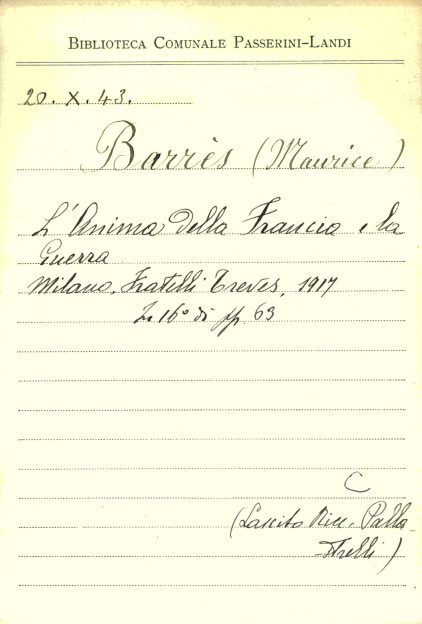 BIBLIOTECA COMUNALE PASSERINI-LANDI
20. X. 43.
Barrès (Maurice)
L'Anima della Francia e la
Guerra
Milano, Fratelli Treves, 1917
In 16° di pp. 63
C
(Lascito Ricc. Palla-
strelli)